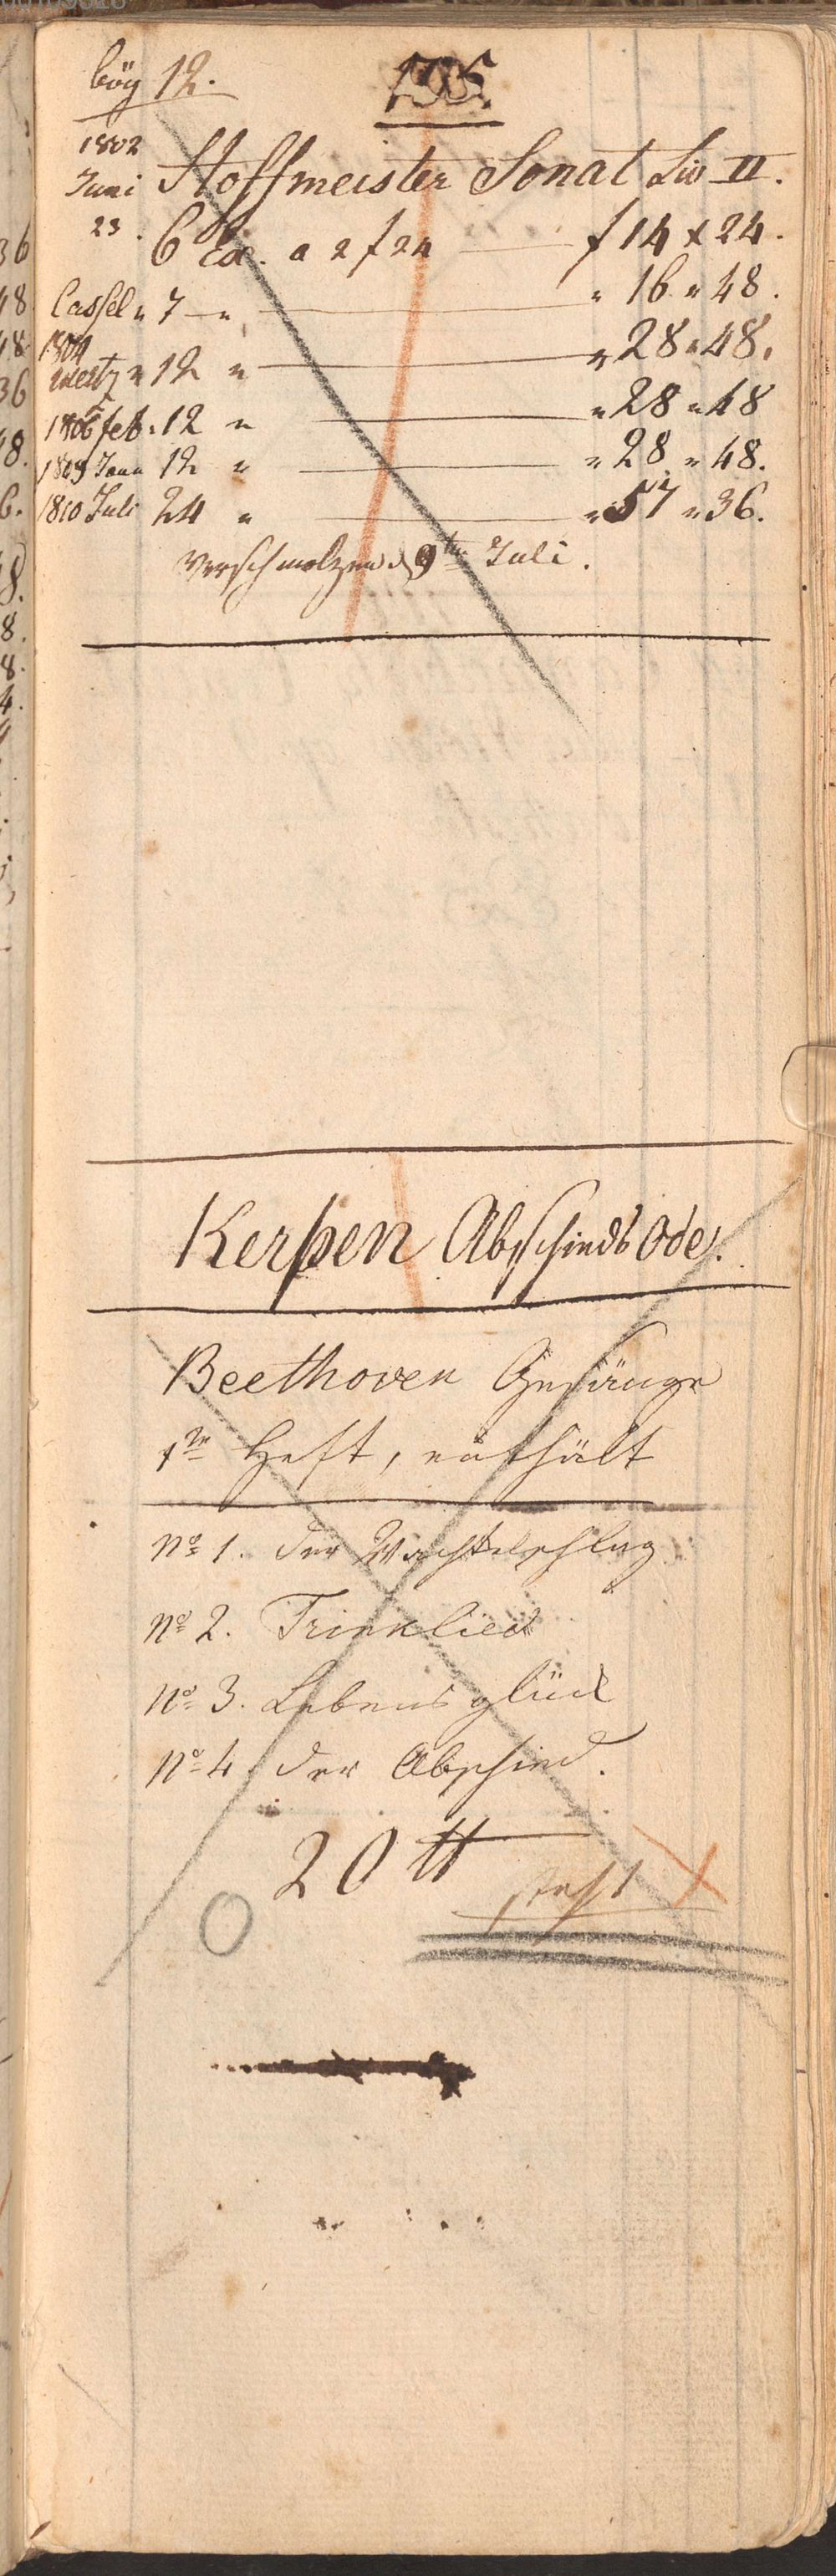 bög 12.
195.
1802
Juni Hoffmeister Sonat Liv II.
23. 6 Ex. a 2 f 24 — f 14 x 24.
Cassel " 7 — " — " 16 " 48.
1804
mertz " 12 " — " 28 " 48.
1806 feb. 12 " — " 28 " 48
1809 Janu 12 " — " 28 " 48.
1810 Juli 24 " — " 57 " 36.
Verschmolzen d 9ten Juli.
Kerpen Abschieds Ode.
Beethoven Gesänge
1te Heft, enthält
No 1. Der Wachtelschlag
No 2. Trinklied
No 3. Lebensglück
No 4 der Abschied.
20 tt
steht